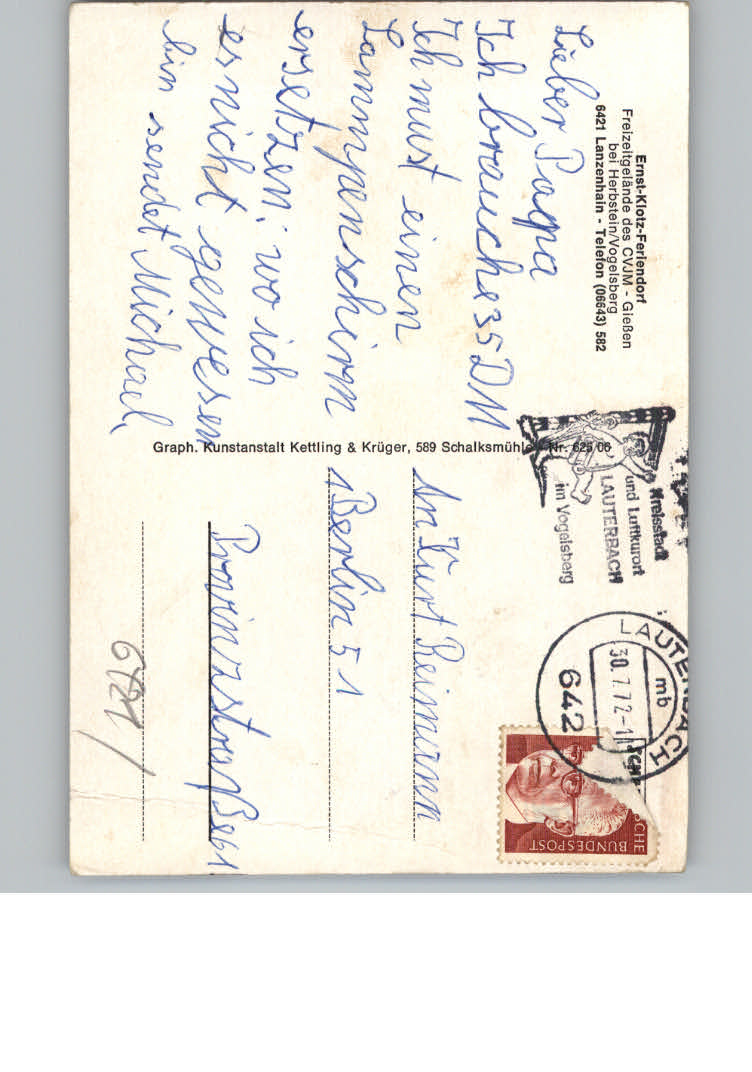 Ernst-Klotz-Feriendorf
Freizeitgelände des CVJM - Gießen
bei Herbstein/Vogelsberg
6421 Lanzenhain - Telefon (06643) 582
Lieber Papa
Ich brauche 35 DM
Ich must einen
Lammpenschirm
ersetzen, wo ich
es nicht gewesen
bin sendet Michael,
Graph. Kunstanstalt Kettling & Krüger, 589 Schalksmühle Nr. 625 06
Kreisstadt
und Luftkurort
LAUTERBACH
im Vogelsberg
LAUTERBACH
mb
30.7.72-1
642
BUNDESPOST
An Kurt Reimann
1 Berlin 51
Provinzstraße 61